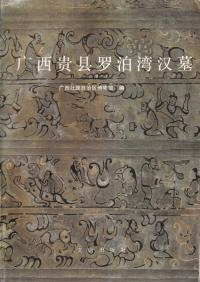 广西贵县罗泊湾汉墓
广西壮族自治区博物馆 编
文物出版社